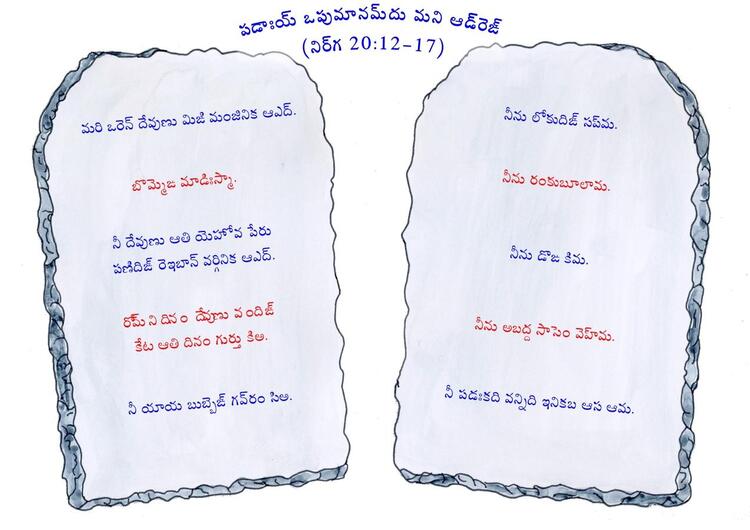 పడాఃయ్ ఒపుమానమ్‌దు మని ఆడ్‌రెఙ్
(నిర్‌గ 20:12-17)
మరి ఒరెన్ దేవుణు మిజి మంజినిక ఆఎద్.
బొమ్మెఙ మాడిఃస్మా.
నీ దేవుణు ఆతి యెహోవ పేరు
పణిదిఙ్ రెఇబాన్ వర్గినిక ఆఎద్.
రోమ్‌ని దినం దేవుణు వందిఙ్
కేట ఆతి దినం గుర్తు కిఅ.
నీ యాయ బుబ్బెఙ్ గవ్‌రం సిఅ.
నీను లోకుదిఙ్ సప్‌మ.
నీను రంకుబూలామ.
నీను డొఙ కిమ.
నీను అబద్ద సాసెం వెహ్‌మ.
నీ పడఃకది వన్నిది ఇనికబ ఆస ఆమ.